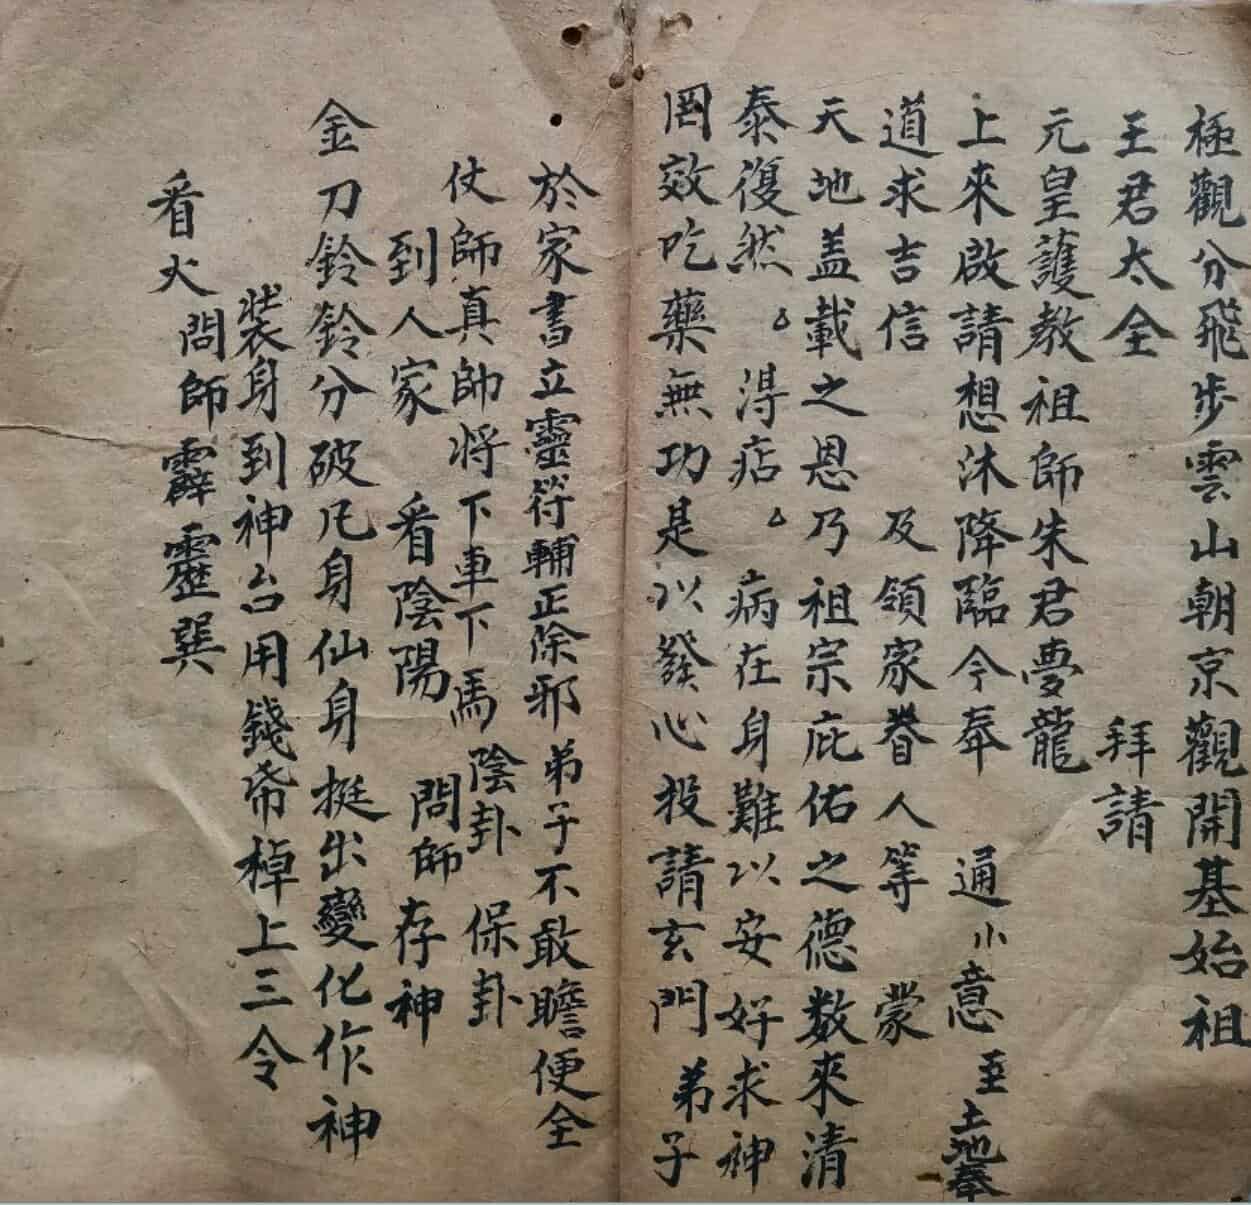 極觀分飛步雲山朝京觀開基始祖
王君太全 拜請
元皇護教祖師朱君夢龍
上來啟請想沐降臨今奉 通小意至土地奉
道求吉信 及領家眷人等 蒙
天地盖載之恩乃祖宗庇佑之德数來清
泰復然。得痁。病在身難以安好求神
罔效吃藥無功是以發心投請玄門弟子
於家書立靈符輔正除邪弟子不敢瞻便全
仗師真帥将下車下馬陰卦 保卦
到人家 看陰陽 問師存神
金刀鈴鈴分破凡身仙身挺出變化作神
装身到神台用錢帋棹上三令
看火問師霹靂巽